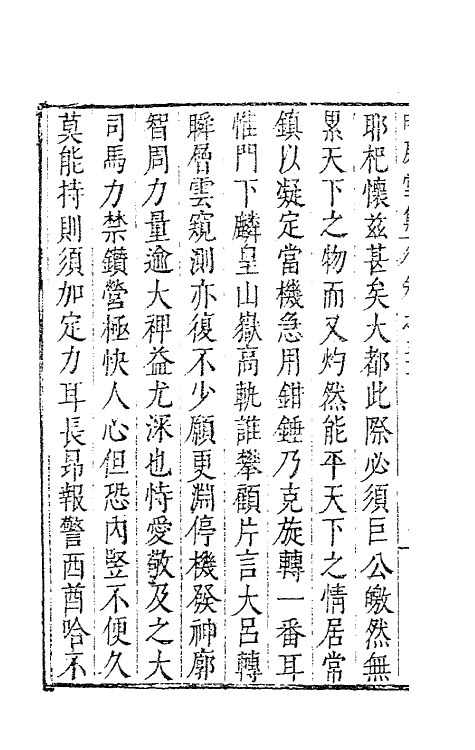 耶杞懷茲甚矣大都此際必須巨公皦然無
累天下之物而又灼然能平天下之情居常
鎮以凝定當機急用鉗錘乃克旋轉一番耳
惟門下麟皇山嶽高軌誰攀顧片言大呂轉
瞬層雲窺測亦復不少願更淵停機發神廓
智周力量逾大裨益尤深也恃愛敬及之大
司馬力禁鑽營極快人心但恐內豎不便久
莫能持則須加定力耳長昂報警西酋哈不